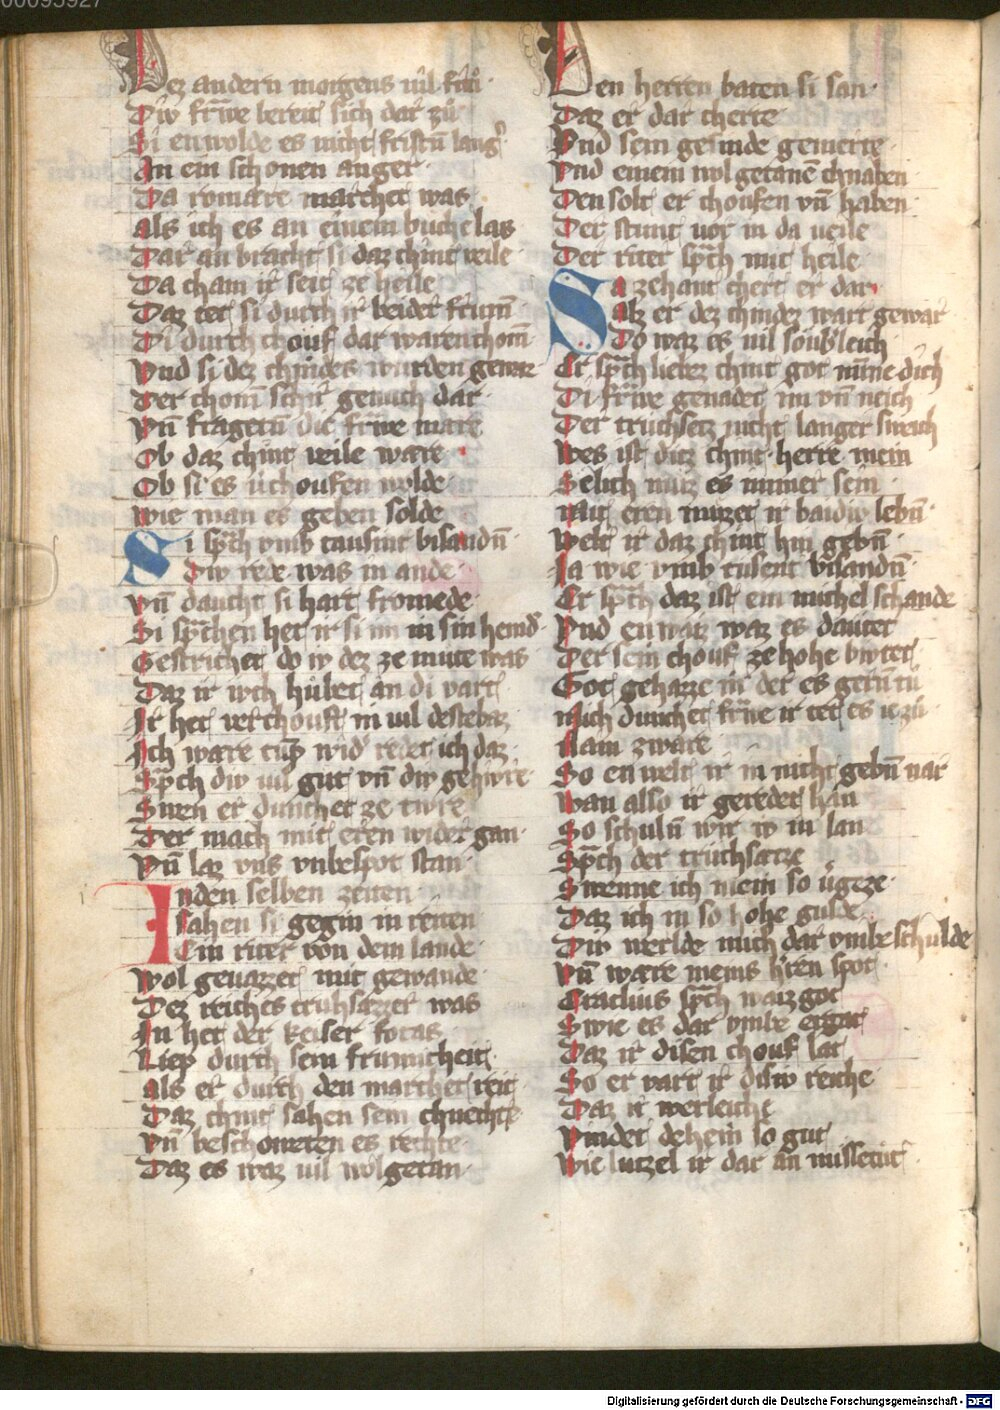 00095927
Dez andern morgens vil frů
Div frwe bereit sich dar zů
Si enwolde es nicht fristn lang
An ein schonen anger
Da iomarc marchet was
als ich es an einem buche las
Dar an bracht si daz chint veile
Da cham ir seit ze heile
Daz tet si durch ir beider frum
Di durch chouf dar waren chom
Vnd si dez chindes wurden gewar
Der chom schir genuch dar
Vn fragetn die frwe mare
Ob daz chint veile ware
Ob si es uchoufen wolde
wie man es geben solde
Si sprch vmb tausint bisandn
Div rede was in ande
Vn daucht si hart fromede
Si sprchen het ir si im in sin hemd
Gestrichet do iv dez ze mute was
Daz ir ivch hubet an di vart
Ir het verchouft in vil destebaz
Ich ware tump wid redet ich daz
Sprch div vil gut vn div gehivre
Swen er dunchet ze tivre
Der mach mit eren wider gan
Vn laz vns vnbespot stan
In den selben zeiten
sahen si gegin in reiten
Ein riter von dem lande
Wol geuazzet mit gewande
Dez reiches truhsatzet was
In het der keiser focas
Liep durch sein frumicheit
als er durch den marchet reit
Daz chint sahen sein chnechte
Vn beschoweten es rechte
Daz es waz vil wolgetan
Den herren baten si san
Daz er dar cherte
Vnd sein gesinde gemerte
Vnd einem wolgetane chnaben
Den solt er choufen vn haben
Der stunt vor in da veile
Der riter sprch mit heile
Sa zehant chert er dar
alz er dez chindez wart gewar
Do waz es vil soubleich
Er sprch liebez chint got minne dich
Di frwe genadet im vn neich
Der truchsetz nicht langer sweich
Wes ist ditz chint herre mein
Selich muz es immer sein
Mit eren muzet ir baidiv lebn
Welt ir daz chint hin gebn
Ia wie vmb tusent bisandn
Er sprch daz ist ein michel schande
Vnd enwaz waz es dautet
Der sein chouf ze hohe biutet
Got gehazze in der es gern tu
mich dunchet frwe ir tet es iezu
Nain zware
So enwelt ir in nicht gebn nar
wan also ir geredet han
So schuln wir iv in lan
Sprch der truchsatze
Swenne ich mein so vgeze
Daz ich in so hohe gulde
Div werlde mich dar vmbe schulde
Vn ware meins hren spot
Eraclius sprch waiz got
Swie es dar vmbe ergat
Daz ir disen chouf lat
So er vart ir disiv reiche
Daz ir werleiche
Vindet dehein so gut
Wie lutzel ir dar an missetut
Digitalisierung gefördert durch die Deutsche Forschungsgemeinschaft - DFG